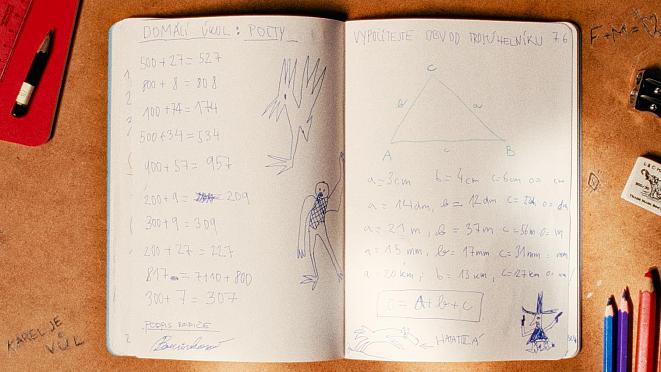 DOMÁCÍ ÚKOL: POČTY
500 + 27 = 527
800 + 8 = 808
100 + 74 = 174
500 + 34 = 534
900 + 57 = 957
200 + 9 = 209
300 + 9 = 309
200 + 27 = 227
817 = 7+10+800
300 + 7 = 307
PODPIS RODIČE
VYPOČÍTEJTE OBVOD TROJÚHELNÍKU 76
C
b a
A c B
a = 3cm b = 4cm c = 6cm
a = 14dm, b = 12dm c =
a = 21m, b = 37m c = 56m
a = 15mm, b = 17mm c = 31mm
a = 20km, b = 13km, c = 27km
o = A + b + c
KAREL JE
VŮL